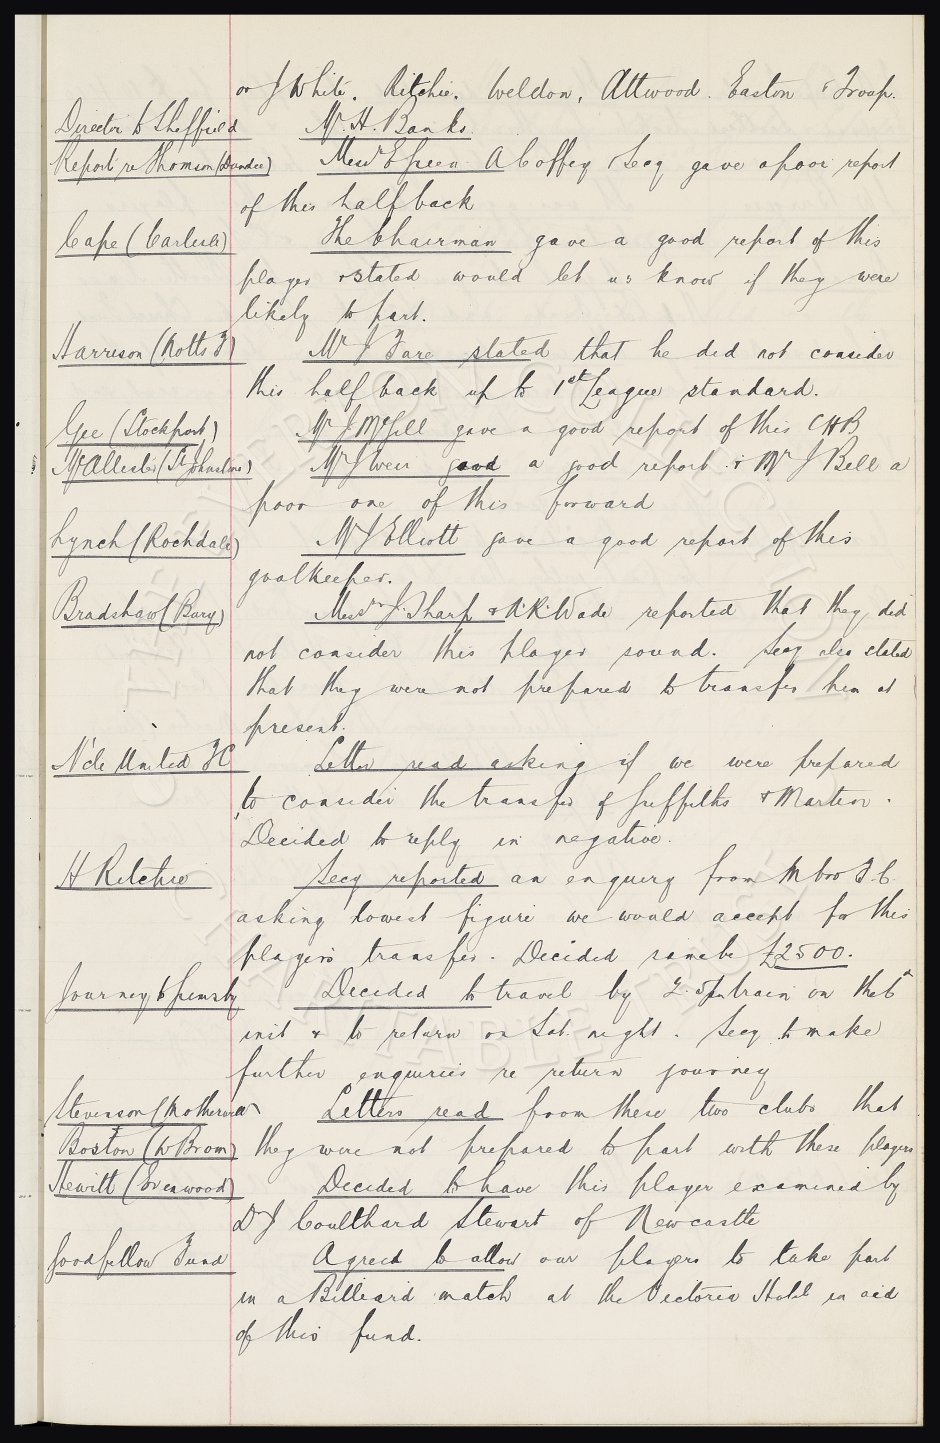 or J White. Ritchie. Weldon, Attwood. Easton & Troup.
Director to Sheffield Mr. H. Banks.
Report re Thomson (Dundee) Messrs E Green A Coffey & Secy gave a poor report
of this half back
Cape (Carlisle) The Chairman gave a good report of this
player & stated would let us know if they were
likely to part.
Harrison (Notts F) Mr J Fare stated that he did not consider
this half back up to 1st League standard.
Gee (Stockport) Mr J McGill gave a good report of this CHB
McAllister (St Johnstone) Mr J Weir good a good report & Mr J Bell a
poor one of this forward
Lynch (Rochdale) Mr J Elliott gave a good report of this
goalkeeper.
Bradshaw (Bury) Messrs J. Sharp & R.R. Wade reported that they did
not consider this player sound. Secy also stated
that they were not prepared to transfer him at
present.
N'cle United FC Letter read asking if we were prepared
to consider the transfer of Griffiths & Martin.
Decided to reply in negative.
H Ritchie Secy reported an enquiry from Mbro F.C.
asking lowest figure we would accept for this
player's transfer. Decided same be £2500.
Journey to Grimsby Decided to travel by 2.5pm train on that
inst & to return on Sat. night. Secy to make
further enquiries re return journey
Stevenson (Motherwell) Letters read from these two clubs that
Boston (W Brom) they were not prepared to part with these players
Hewitt (Evenwood) Decided to have this player examined by
Dr J Coulthard Stewart of Newcastle
Goodfellow Fund Agreed to allow our players to take part
in a Billiard match at the Victoria Hotel in aid
of this fund.